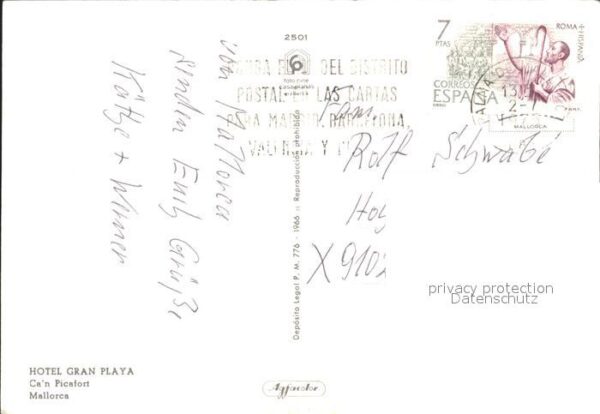 2501
7
PTAS
ROMA
HISPANIA
CORREOS
ESPAÑA
MALLORCA
DEL DISTRITO
POSTAL EN LAS CARTAS
PARA MADRID, BARCELONA,
VALENCIA Y
von Mallorca
senden Euch Grüße
Kätze + Werner
Fam
Rolf Schwabe
X 9102
Depósito Legal P. M. 776 - 1966 :: Reproducción prohibida
privacy protection
Datenschutz
HOTEL GRAN PLAYA
Ca'n Picafort
Mallorca
Agfacolor